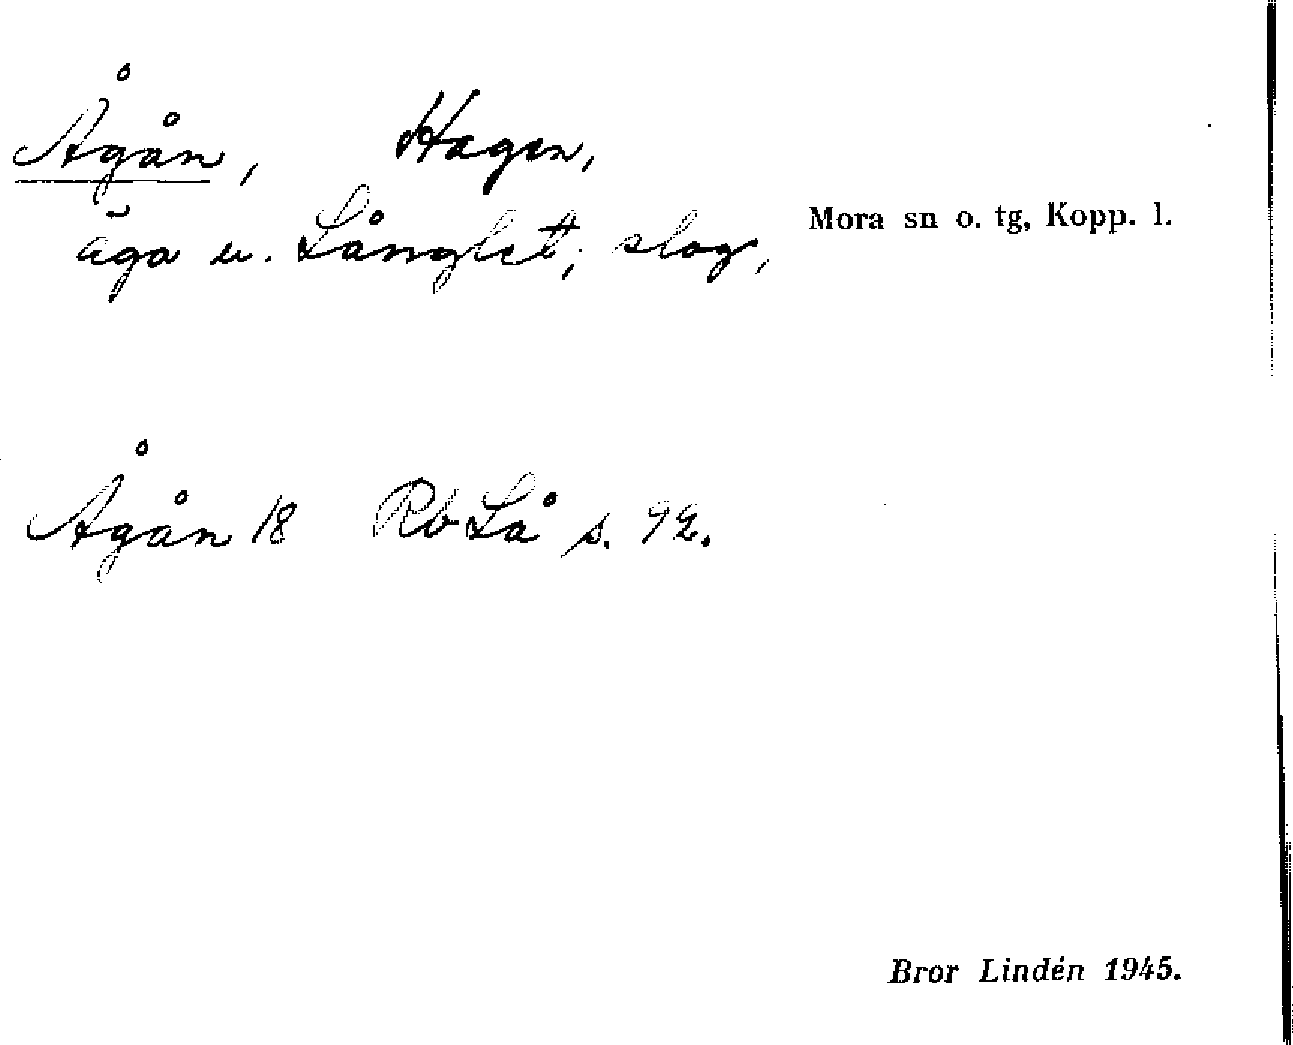 Ågån, Hagen,
äga u. Långlet, slog,
Mora sn o. tg, Kopp. l.
Ågån 18 Rb Lå s. 92.
Bror Lindén 1945.